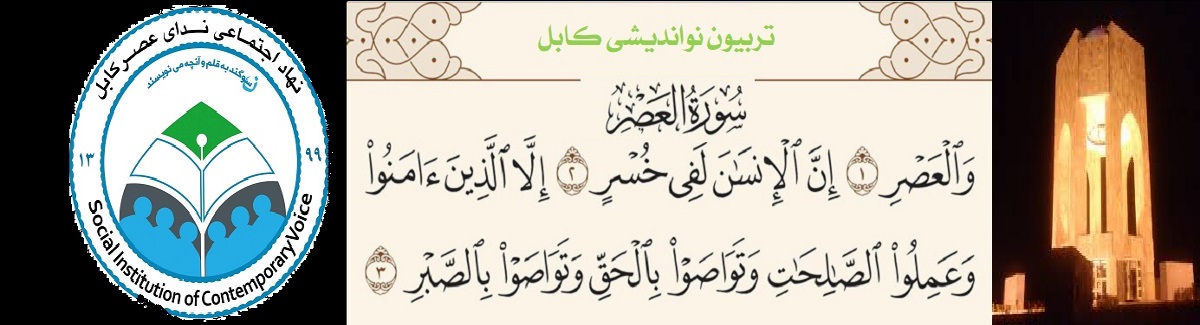 نهاد اجتماعی ندای عصر کابل
ن سوگند به قلم و آنچه می نویسند
۱۳ ۹۹
Social Institution of Contemporary Voice
تریبون نواندیشی کابل
سُورَةُ العَصْرِ
وَٱلْعَصْرِ ١ إِنَّ ٱلْإِنسَٰنَ لَفِى خُسْرٍ ٢ إِلَّا ٱلَّذِينَ ءَامَنُوا۟
وَعَمِلُوا۟ ٱلصَّٰلِحَٰتِ وَتَوَاصَوْا۟ بِٱلْحَقِّ وَتَوَاصَوْا۟ بِٱلصَّبْرِ ٣